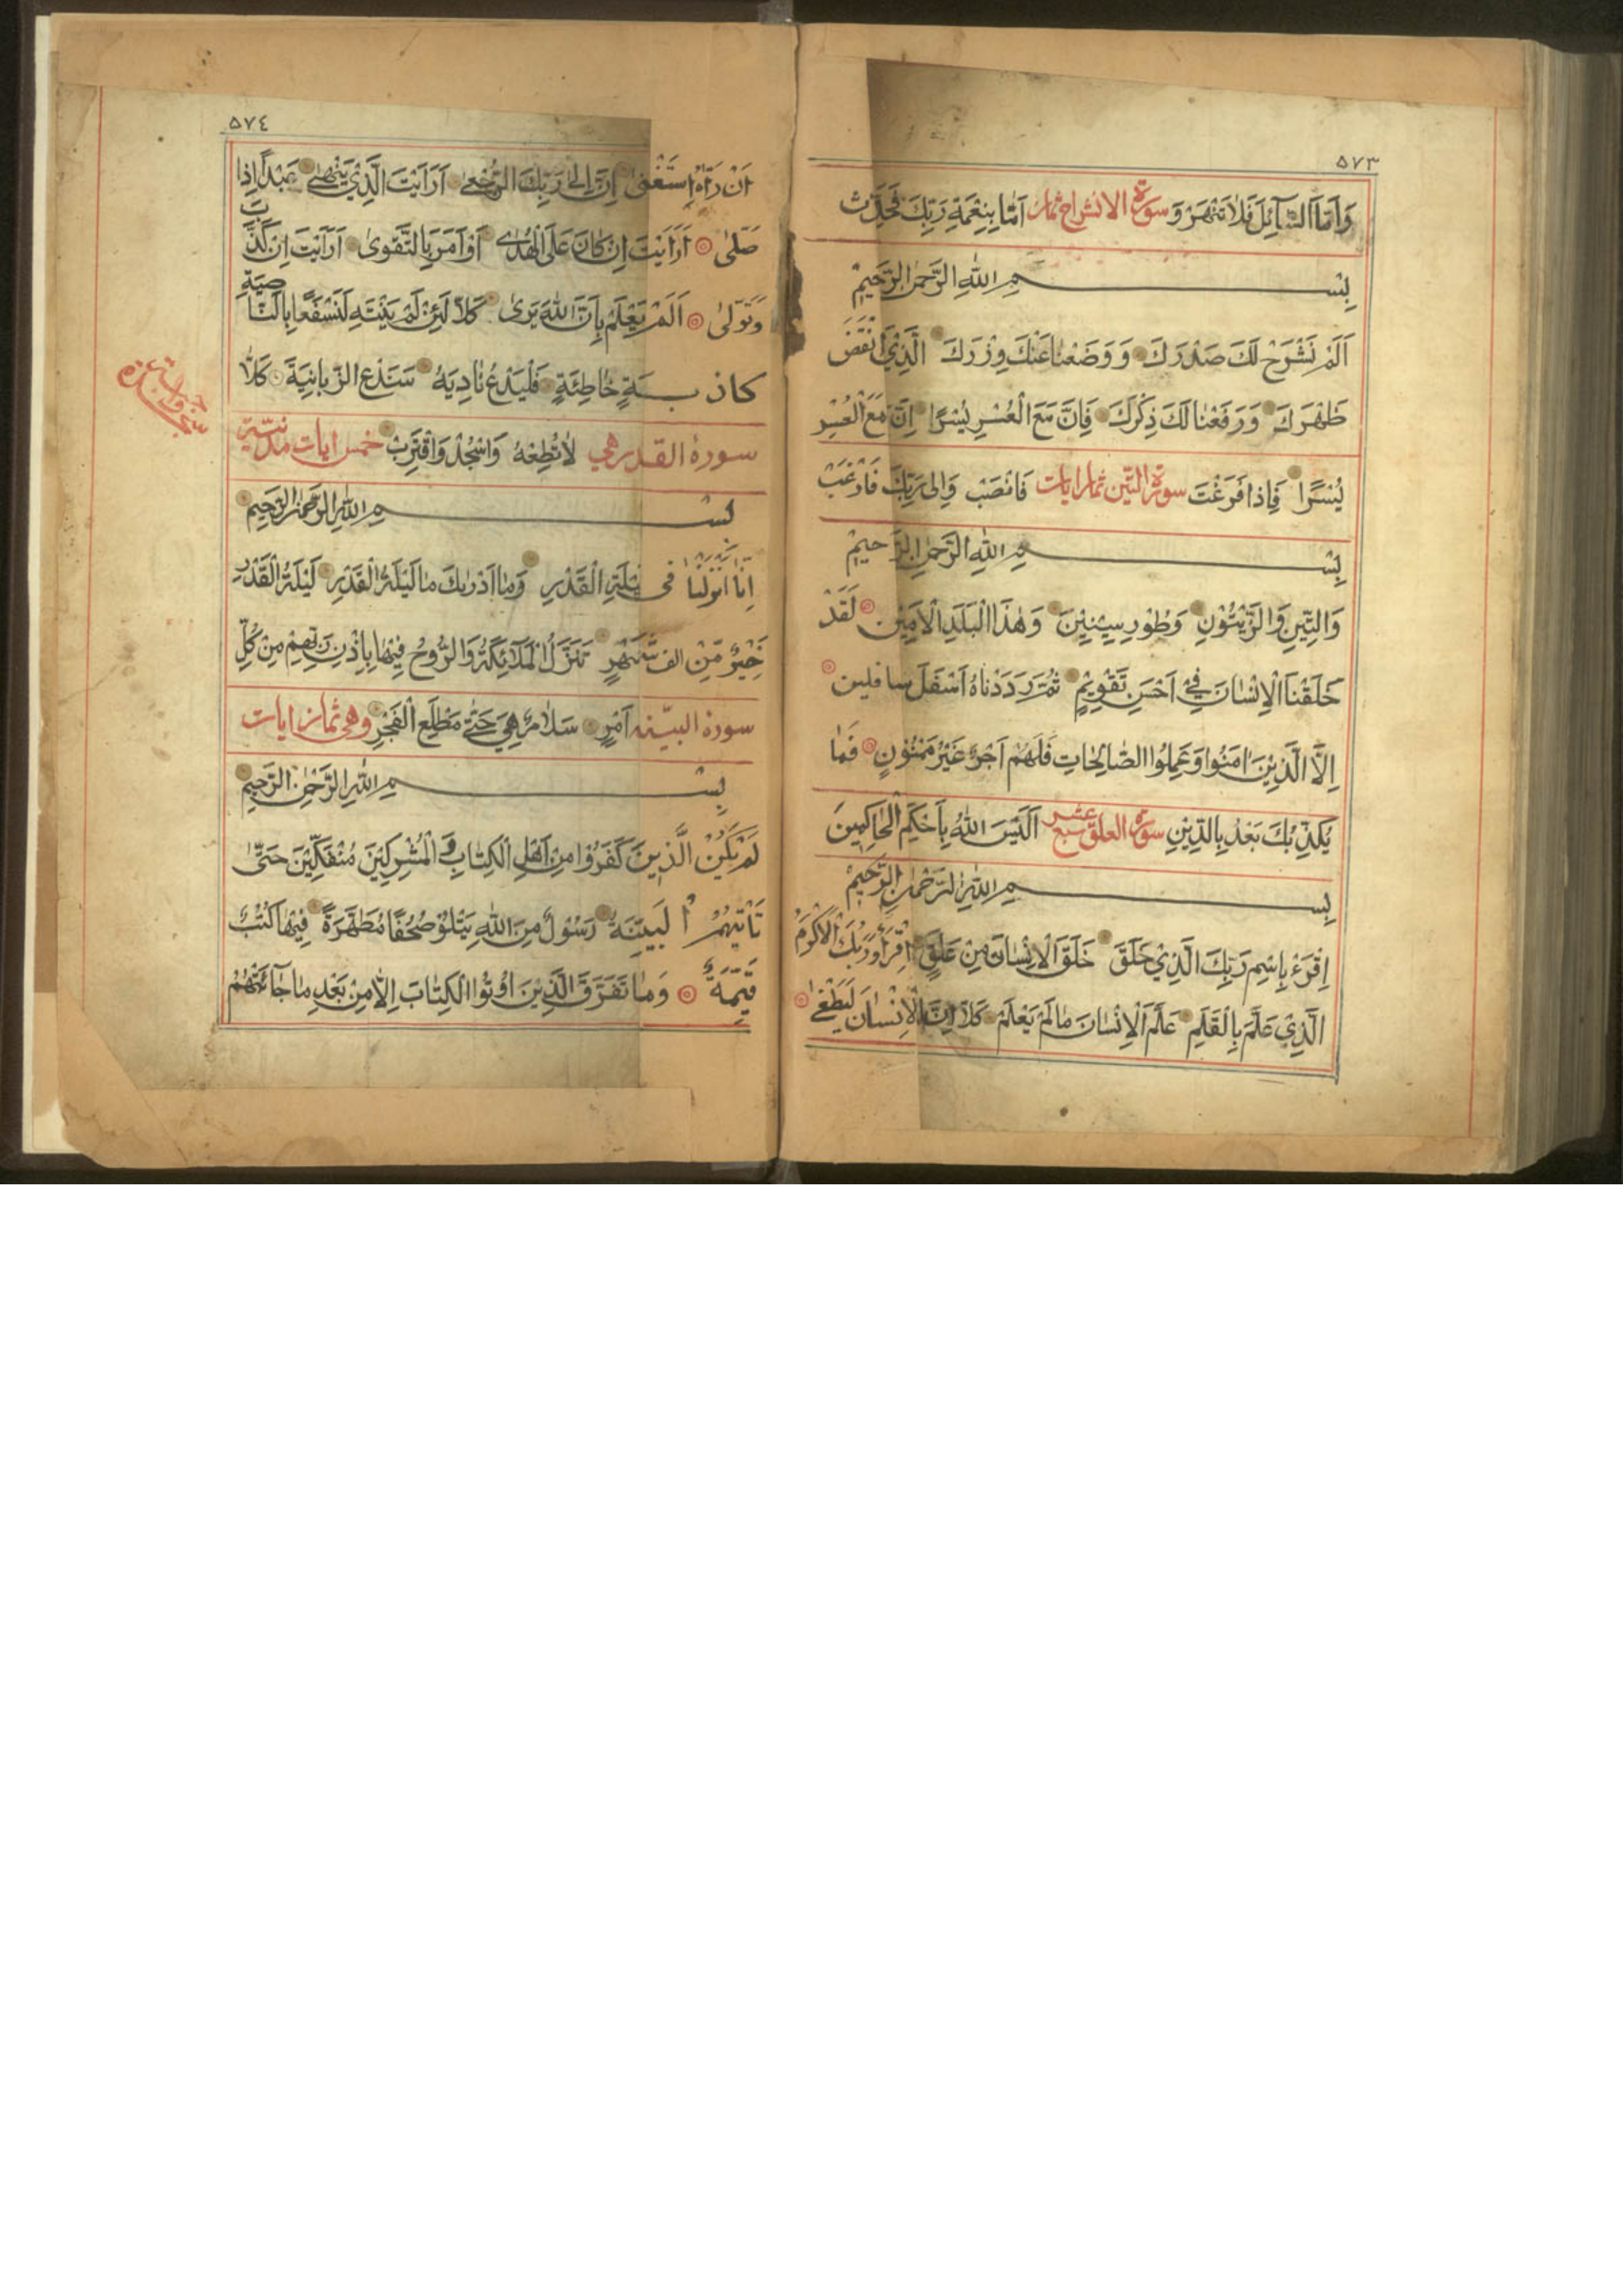 ٥٧٣
وَاَمَّا السَّآئِلَ فَلَا تَنْهَرْ وَ سورة الانشراح ثمان اَمَّا بِنِعْمَةِ رَبِّكَ فَحَدِّثْ
بِسْمِ اللهِ الرَّحْمٰنِ الرَّحِيْمِ
اَلَمْ نَشْرَحْ لَكَ صَدْرَكَ وَوَضَعْنَا عَنْكَ وِزْرَكَ الَّذِيْ اَنْقَضَ
ظَهْرَكَ وَرَفَعْنَا لَكَ ذِكْرَكَ فَاِنَّ مَعَ الْعُسْرِ يُسْرًا اِنَّ مَعَ الْعُسْرِ
يُسْرًا فَاِذَا فَرَغْتَ سورة التين ثمان ايات فَانْصَبْ وَاِلٰى رَبِّكَ فَارْغَبْ
بِسْمِ اللهِ الرَّحْمٰنِ الرَّحِيْمِ
وَالتِّيْنِ وَالزَّيْتُوْنِ وَطُوْرِ سِيْنِيْنَ وَهٰذَا الْبَلَدِ الْاَمِيْنِ لَقَدْ
خَلَقْنَا الْاِنْسَانَ فِيْ اَحْسَنِ تَقْوِيْمٍ ثُمَّ رَدَدْنَاهُ اَسْفَلَ سافلين
اِلَّا الَّذِيْنَ اٰمَنُوْا وَعَمِلُوا الصَّالِحَاتِ فَلَهُمْ اَجْرٌ غَيْرُ مَمْنُوْنٍ فَمَا
يُكَذِّبُكَ بَعْدُ بِالدِّيْنِ سورة العلق سبع عشر اَلَيْسَ اللهُ بِاَحْكَمِ الْحَاكِمِيْنَ
بِسْمِ اللهِ الرَّحْمٰنِ الرَّحِيْمِ
اِقْرَءْ بِاسْمِ رَبِّكَ الَّذِيْ خَلَقَ خَلَقَ الْاِنْسَانَ مِنْ عَلَقٍ اِقْرَأْ وَرَبُّكَ الْاَكْرَمُ
الَّذِيْ عَلَّمَ بِالْقَلَمِ عَلَّمَ الْاِنْسَانَ مَا لَمْ يَعْلَمْ كَلَّا اِنَّ الْاِنْسَانَ لَيَطْغٰى
٥٧٤
اَنْ رَاٰهُ اسْتَغْنٰى اِنَّ اِلٰى رَبِّكَ الرُّجْعٰى اَرَاَيْتَ الَّذِيْ يَنْهٰى عَبْدًا اِذَا
صَلّٰى اَرَاَيْتَ اِنْ كَانَ عَلَى الْهُدٰى اَوْ اَمَرَ بِالتَّقْوٰى اَرَاَيْتَ اِنْ كَذَّبَ
وَتَوَلّٰى اَلَمْ يَعْلَمْ بِاَنَّ اللهَ يَرٰى كَلَّا لَئِنْ لَمْ يَنْتَهِ لَنَسْفَعًا بِالنَّاصِيَةِ
كاذبَةٍ خَاطِئَةٍ فَلْيَدْعُ نَادِيَهُ سَنَدْعُ الزَّبَانِيَةَ كَلَّا
سورة القدر هي لَا تُطِعْهُ وَاسْجُدْ وَاقْتَرِبْ خمس ايات مدنية
بِسْمِ اللهِ الرَّحْمٰنِ الرَّحِيْمِ
اِنَّا اَنْزَلْنَاهُ فى لَيْلَةِ الْقَدْرِ وَمَا اَدْرٰىكَ مَا لَيْلَةُ الْقَدْرِ لَيْلَةُ الْقَدْرِ
خَيْرٌ مِّنْ الف شَهْرٍ تَنَزَّلُ الْمَلَآئِكَةُ وَالرُّوْحُ فِيْهَا بِاِذْنِ رَبِّهِمْ مِنْ كُلِّ
سورة البيّنه اَمْرٍ سَلَامٌ هِيَ حَتّٰى مَطْلَعِ الْفَجْرِ وهى ثمان ايات
بِسْمِ اللهِ الرَّحْمٰنِ الرَّحِيْمِ
لَمْ يَكُنْ الَّذِيْنَ كَفَرُوْا مِنْ اَهْلِ الْكِتَابِ وَ الْمُشْرِكِيْنَ مُنْفَكِّيْنَ حَتّٰى
تَأْتِيَهُمُ الْبَيِّنَةُ رَسُوْلٌ مِنَ اللهِ يَتْلُوْ صُحُفًا مُطَهَّرَةً فِيْهَا كُتُبٌ
قَيِّمَةٌ وَمَا تَفَرَّقَ الَّذِيْنَ اُوْتُوا الْكِتَابَ اِلَّا مِنْ بَعْدِ مَا جَآئَتْهُمْ